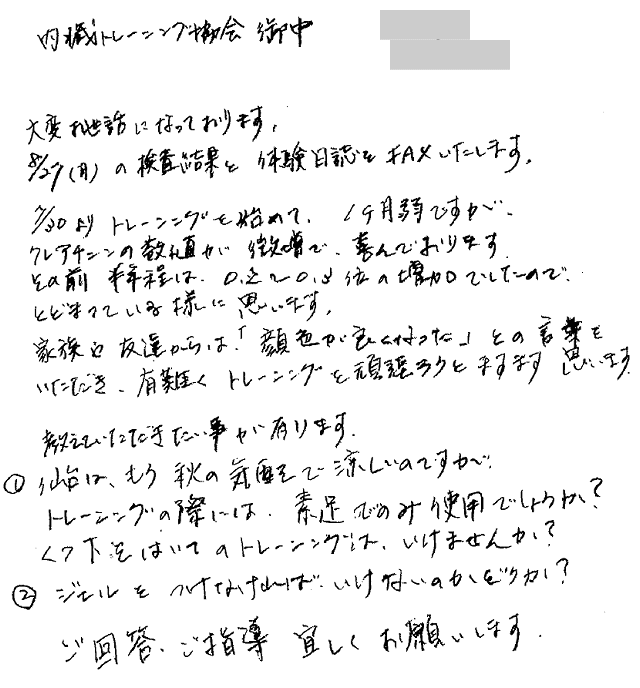 内臓トレーニング協会 御中
大変お世話になっております。
8/27(月)の検査結果と体験日誌をFAXいたします。
7/30よりトレーニングを始めて、1ヶ月弱ですが、
クレアチニンの数値が微増で、喜んでおります
その前半年程は、0.2〜0.3位の増加でしたので、
とどまっている様に思います。
家族や友達からは、「顔色が良くなった」との言葉を
いただき、有難くトレーニングを頑張ろうとますます思います
教えていただきたい事が有ります。
① 仙台は、もう秋の気配で涼しいのですが、
トレーニングの際には、素足でのみ使用でしょうか?
くつ下をはいてのトレーニングは、いけませんか?
② ジェルをつけなければ、いけないのかどうか?
ご回答、ご指導 宜しくお願いします。